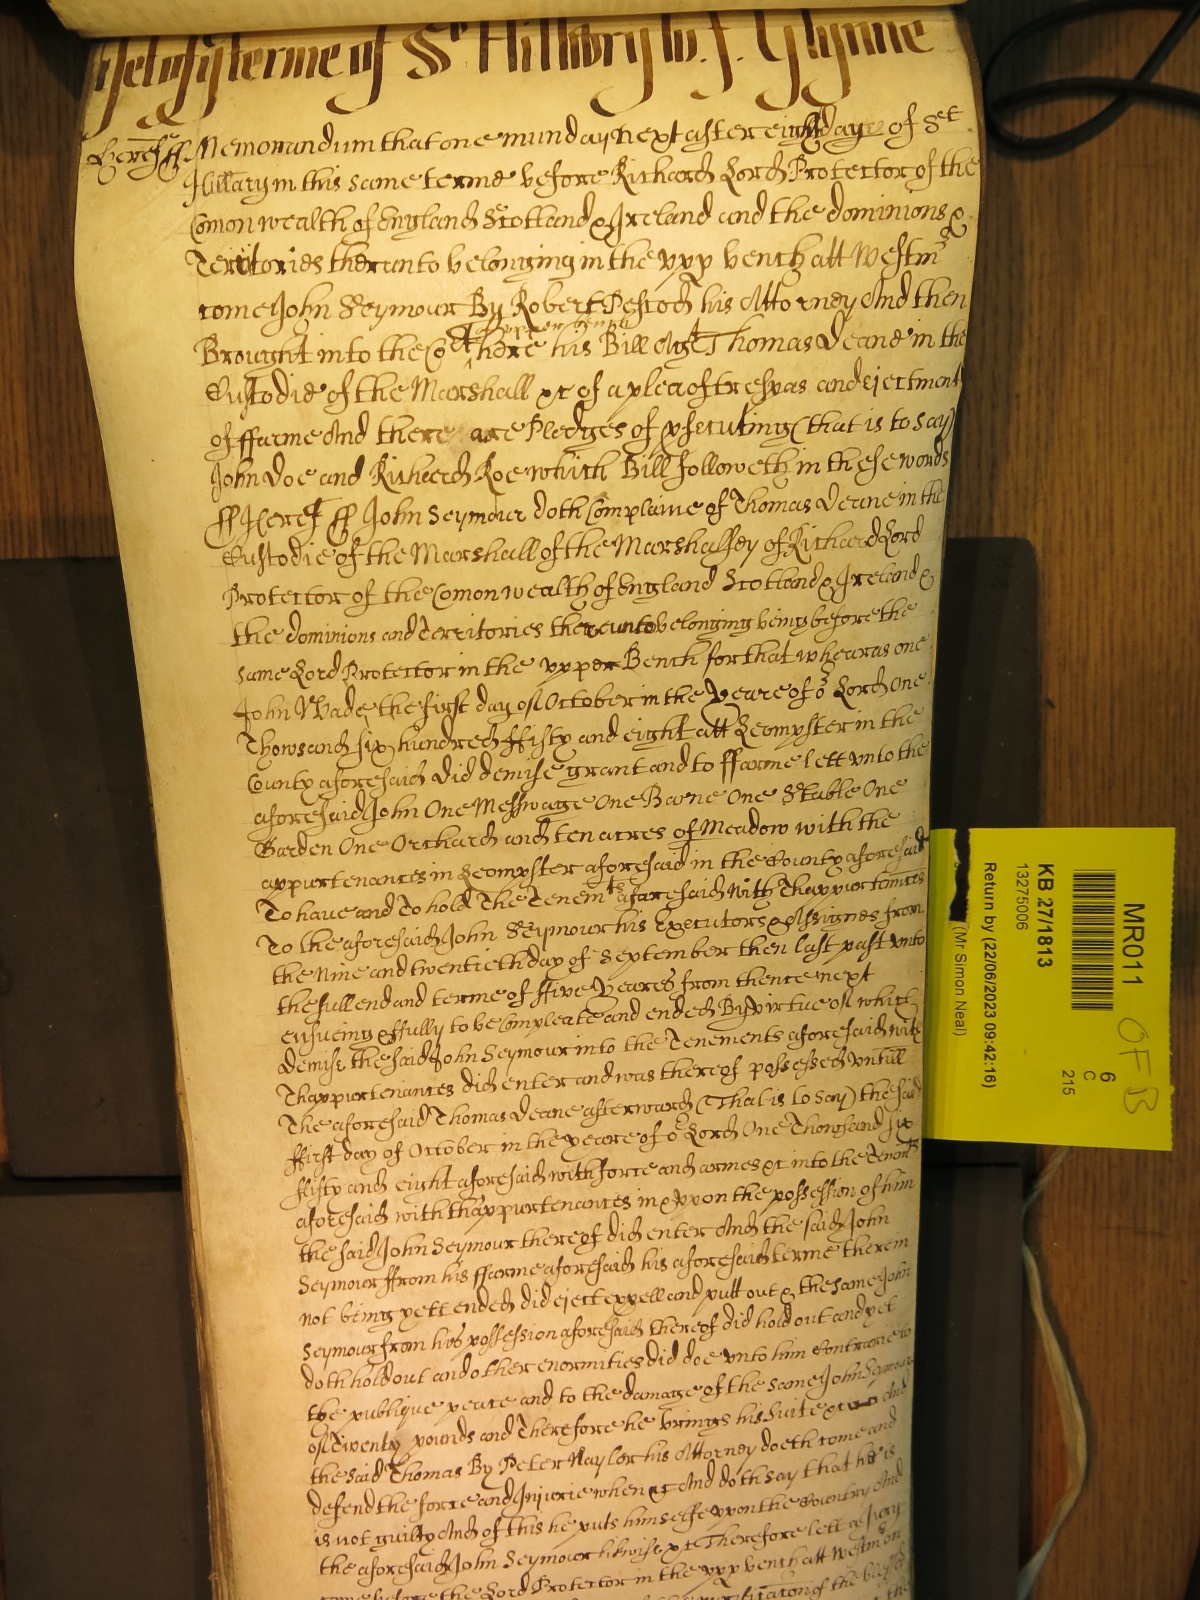 yet of ye terme of St Hillary w. J. Glynne
Heref ss Memorandum that one munday next after eight dayes of St
Hillary in this same terme before Richard Lord Protector of the
Comon wealth of England Scotland & Ireland and the dominions &
Territories therunto belonging in the vpp bench att Westmr
come John Seymour By Robert Pescod his Attorney And then
Brought into the Cort here his Bill Agt Thomas Deane in the
Custodie of the Marshall &c of a plea of trespas and ejectment
of ffarme And there are Pledges of prsecuting (that is to say)
John Doe and Richard Roe which Bill followeth in these words
ss Heref ss John Seymour doth Complaine of Thomas Deane in the
Custodie of the Marshall of the Marshallsey of Richard Lord
Protector of the Comon wealth of England Scotland & Ireland &
the dominions and Territories thereunto belonging being before the
same Lord Protector in the vpper Bench for that whearas one
John Wade the first day of October in the yeare of or Lord One
Thowsand six hundred ffifty and eight att Leompster in the
County aforesaid did demise grant and to ffarme lett vnto the
aforesaid John One Messwage One Barne One Stable One
Garden One Orchard and ten acres of Meadow with the
appurtenances in Leompster aforesaid in the County aforesaid
To have and To hold The Tenemts aforesaid with Thappurtenances
To the aforesaid John Seymour his Executors & Assignes from
the Nine and twentieth day of September then last past vnto
the full end and terme of ffive yeares from thence next
ensueing & fully to be Compleate and ended By virtue of which
demise the said John Seymour into the Tenements aforesaid with
Thappurtenances did enter and was thereof possessed vntill
The aforesaid Thomas Deane afterward (That is to say) the said
ffirst day of October in the yeare of or Lord One Thowsand six
ffifty and eight aforesaid with force and armes &c into the Tenemts
aforesaid with thappurtenances in & vpon the possession of him
the said John Seymour thereof did enter And the said John
Seymour ffrom his ffarme aforesaid his aforesaid terme therein
not being yett ended did eject expell and putt out & the same John
Seymour from his possession aforesaid thereof did hold out and yet
doth hold out and other enormities did doe vnto him Contrarie to
the publique peace and to the damage of the same John Seymour
of Twenty pounds and Therefore he brings his suite &c And
the said Thomas By Peter Naylor his Attorney doeth come and
defend the force and Injurie when &c And doth say that he is
is not guilty And of this he puts himselfe vpon the Country And
the aforesaid John Seymour likwise &c Therefore lett a Jury
come before the Lord Protector in the vpp bench att Westmr on
of the
MR011
6
C
215
KB 27/1813
13275006
Return by (22/06/2023 09:42:16)
(Mr Simon Neal)
OFB